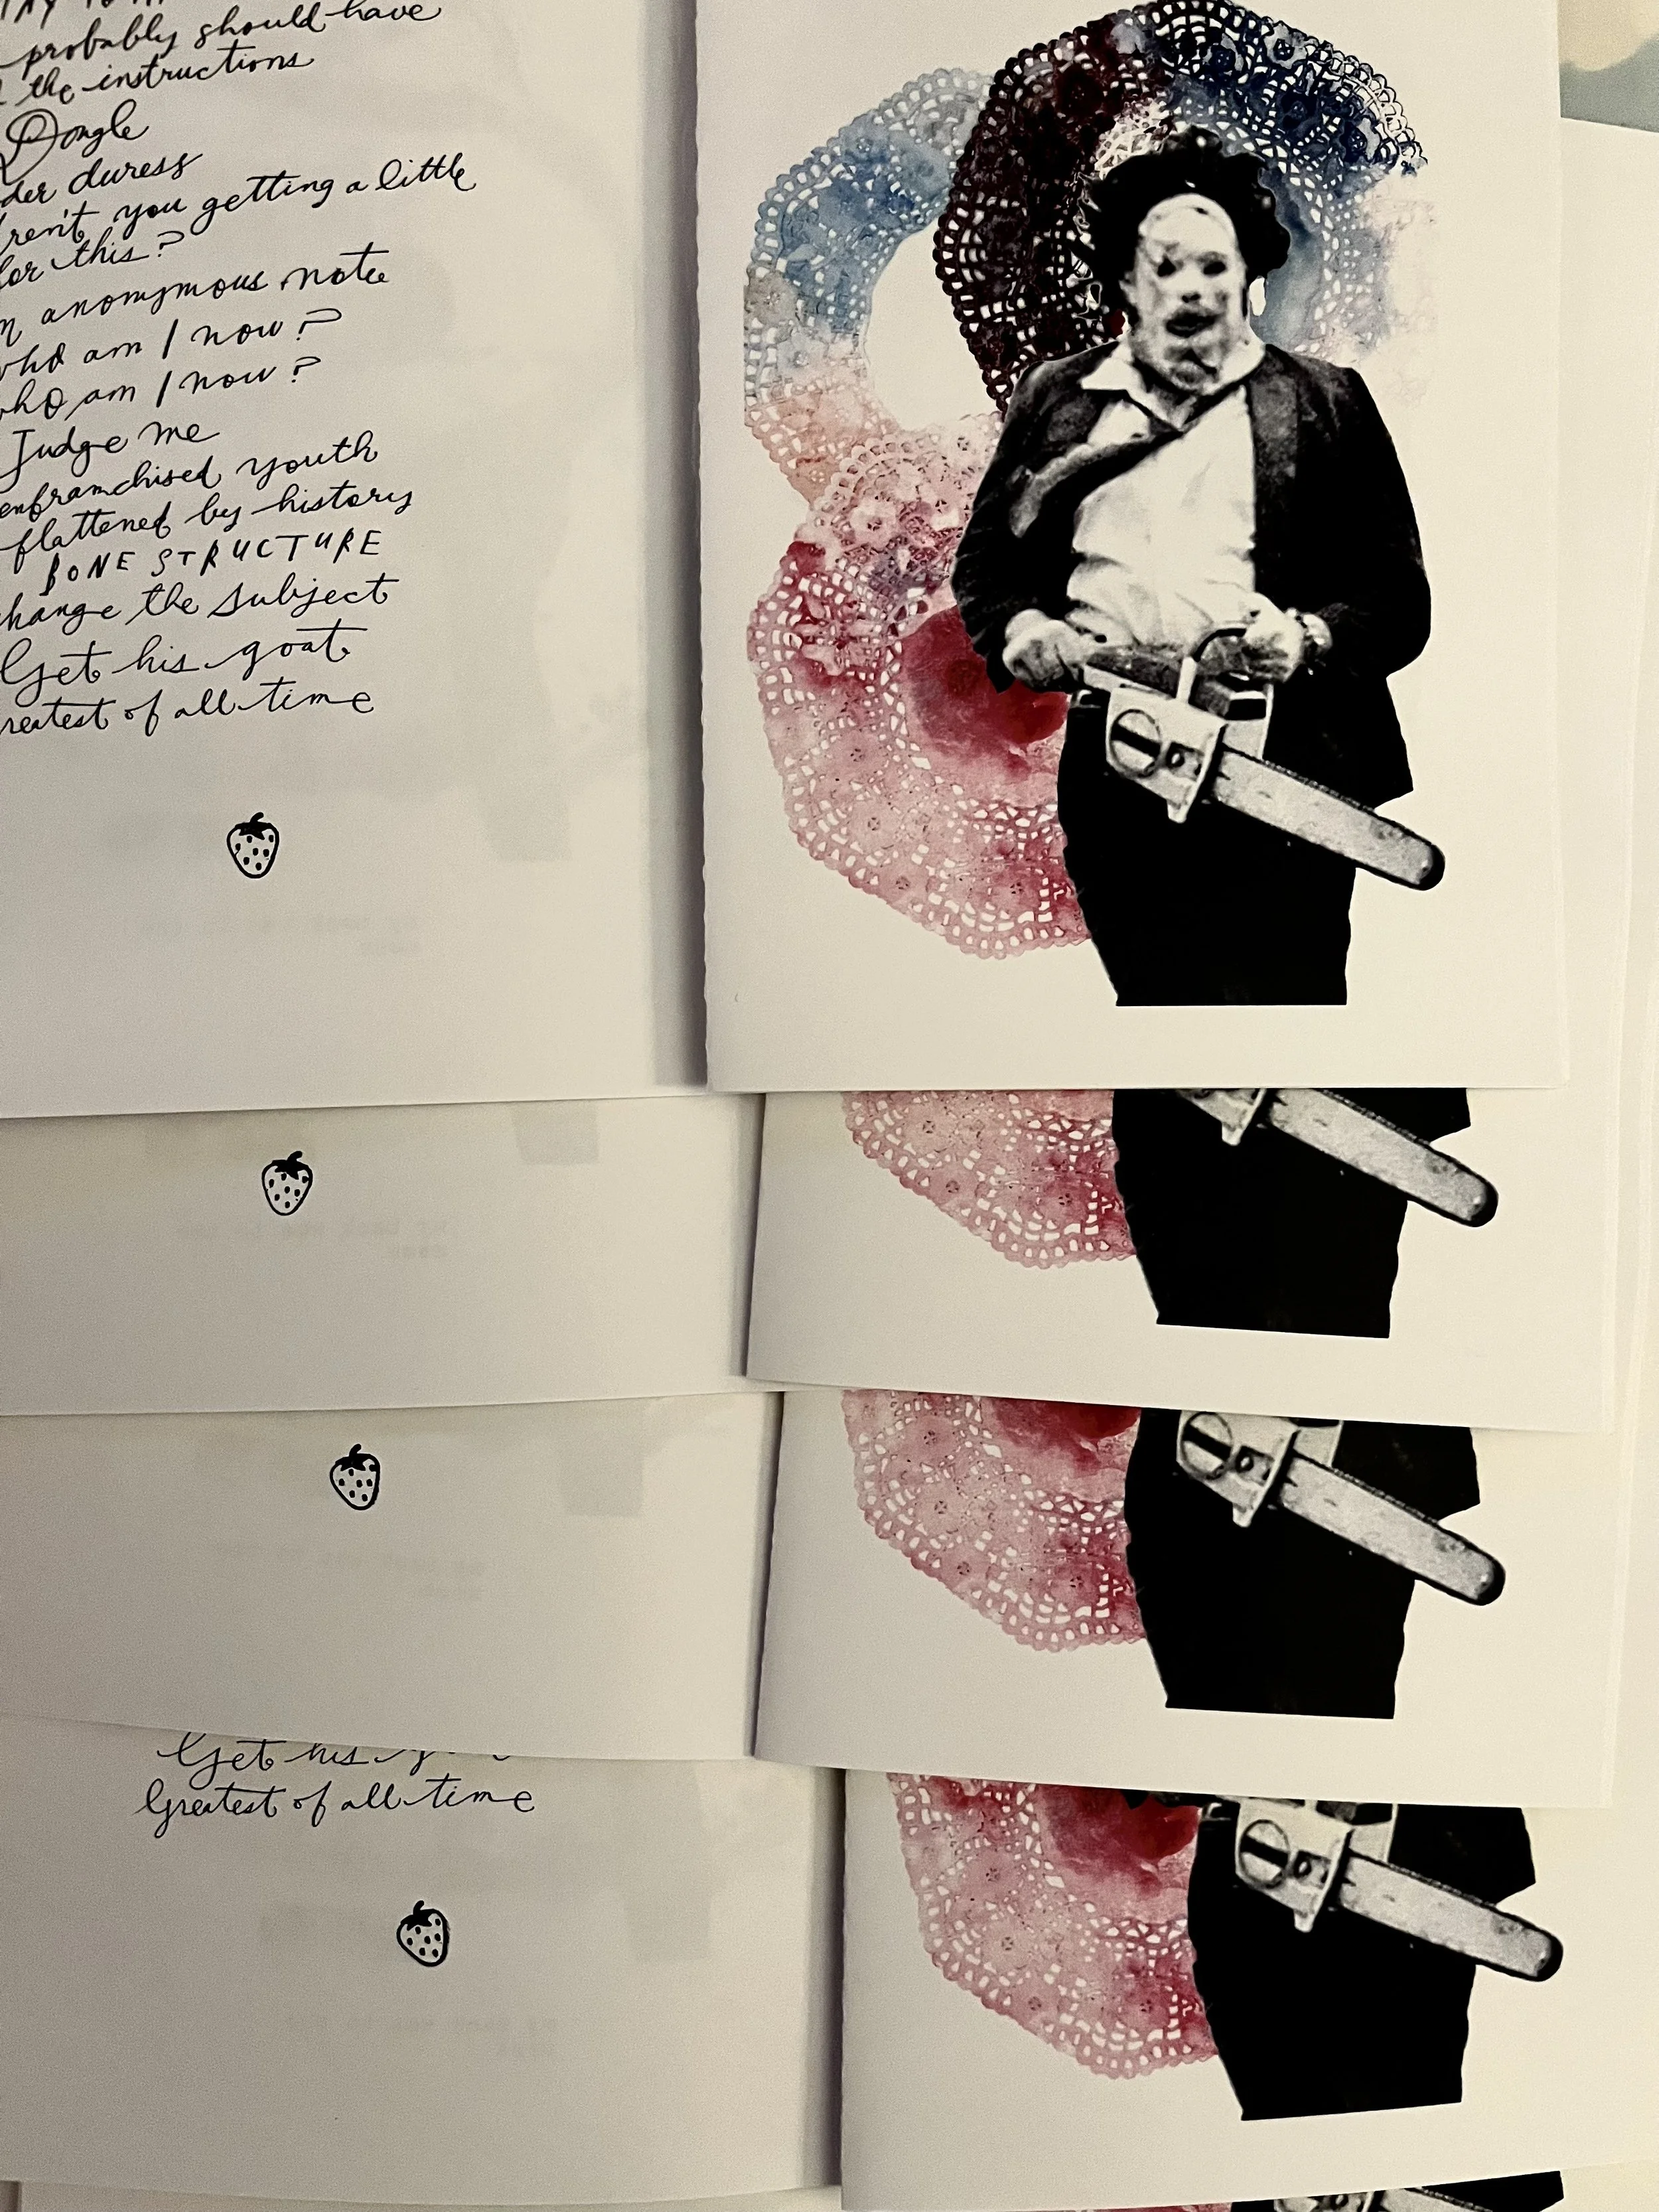 probably should have
the instructions
Dongle
duress
you getting a little
for this?
anonymous note
who am I now?
who am I now?
Judge me
youth
flattened by history
BONE STRUCTURE
the subject
Get his goat
of all time
Get his
Greatest of all time